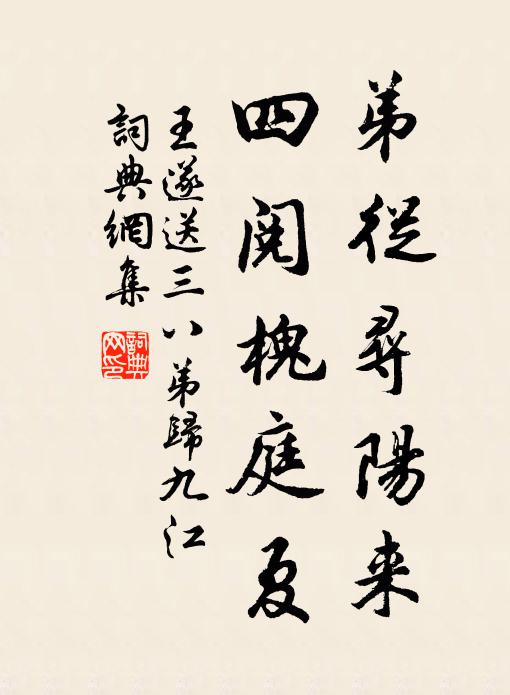 弟從尋陽来
四閱槐庭夏
王遂送三八弟歸九江
詞典網集
詞典网印